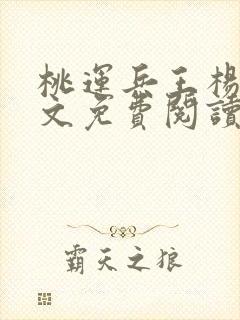 桃運兵王楊
文免費閱讀
霸天之狼